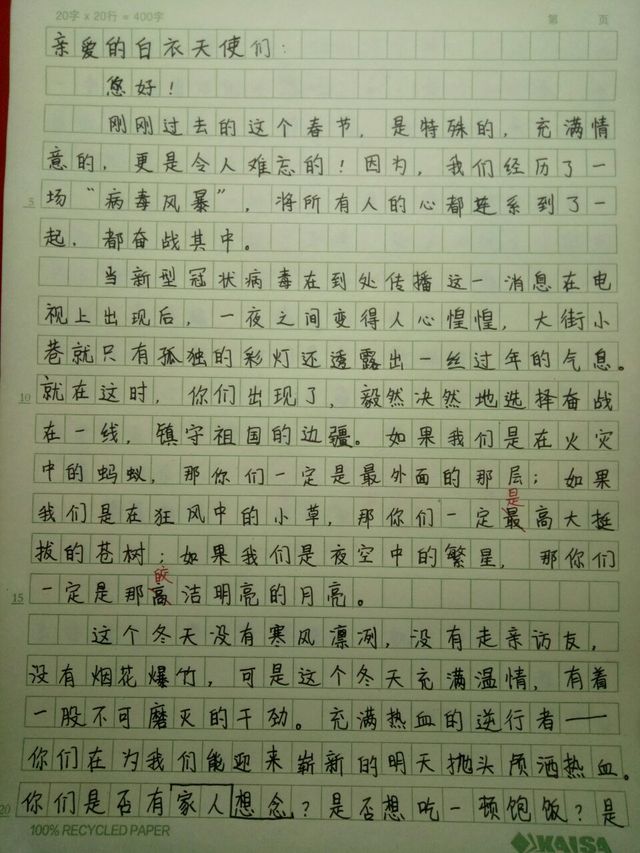 20字 x 20行 = 400字 第 页
亲爱的白衣天使们：
您好！
刚刚过去的这个春节，是特殊的，充满情
意的，更是令人难忘的！因为，我们经历了一
5 场“病毒风暴”，将所有人的心都连系到了一
起，都奋战其中。
当新型冠状病毒在到处传播这一消息在电
视上出现后，一夜之间变得人心惶惶，大街小
巷就只有孤独的彩灯还透露出一丝过年的气息。
10 就在这时，你们出现了，毅然决然地选择奋战
在一线，镇守祖国的边疆。如果我们是在火灾
中的蚂蚁，那你们一定是最外面的那层；如果
是
我们是在狂风中的小草，那你们一定最高大挺
拔的苍树；如果我们是夜空中的繁星，那你们
皎
15 一定是那高洁明亮的月亮。
这个冬天没有寒风凛冽，没有走亲访友，
没有烟花爆竹，可是这个冬天充满温情，有着
一股不可磨灭的干劲。充满热血的逆行者——
你们在为我们能迎来崭新的明天抛头颅洒热血。
20 你们是否有家人想念？是否想吃一顿饱饭？是
100% RECYCLED PAPER KAISA